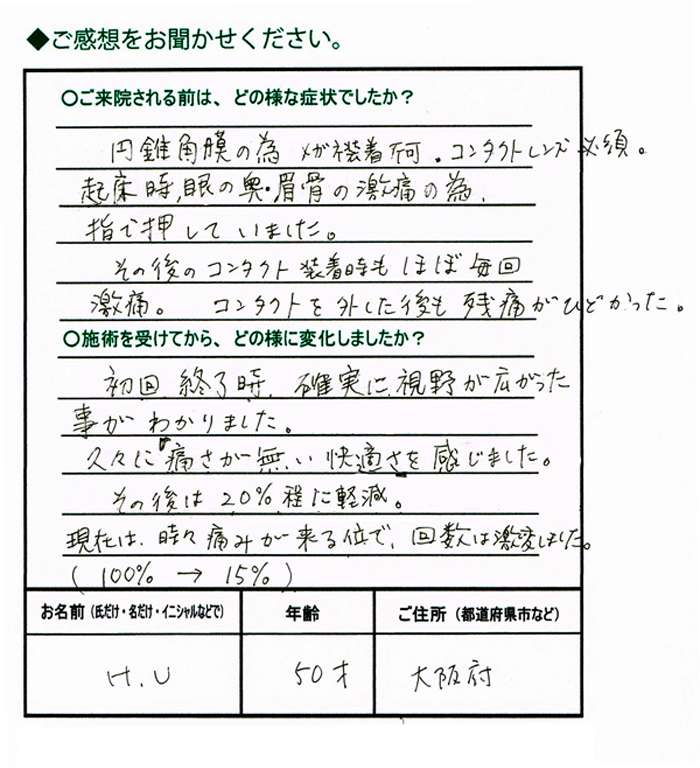 ◆ご感想をお聞かせください。
〇ご来院される前は、どの様な症状でしたか？
円錐角膜の為 メガネ装着不可。コンタクトレンズ必須。
起床時、眼の奥・眉骨の激痛の為、
指で押していました。
その後のコンタクト装着時もほぼ毎回
激痛。 コンタクトを外した後も残痛がひどかった。
〇施術を受けてから、どの様に変化しましたか？
初回終了時、確実に視野が広がった
事がわかりました。
久々に痛さが無い快適さを感じました。
その後は20%程に軽減。
現在は、時々痛みが来る位で、回数は激変しました。
(100% → 15%)
お名前（氏だけ・名だけ・イニシャルなどで） 年齢 ご住所（都道府県市など）
H.U 50才 大阪府